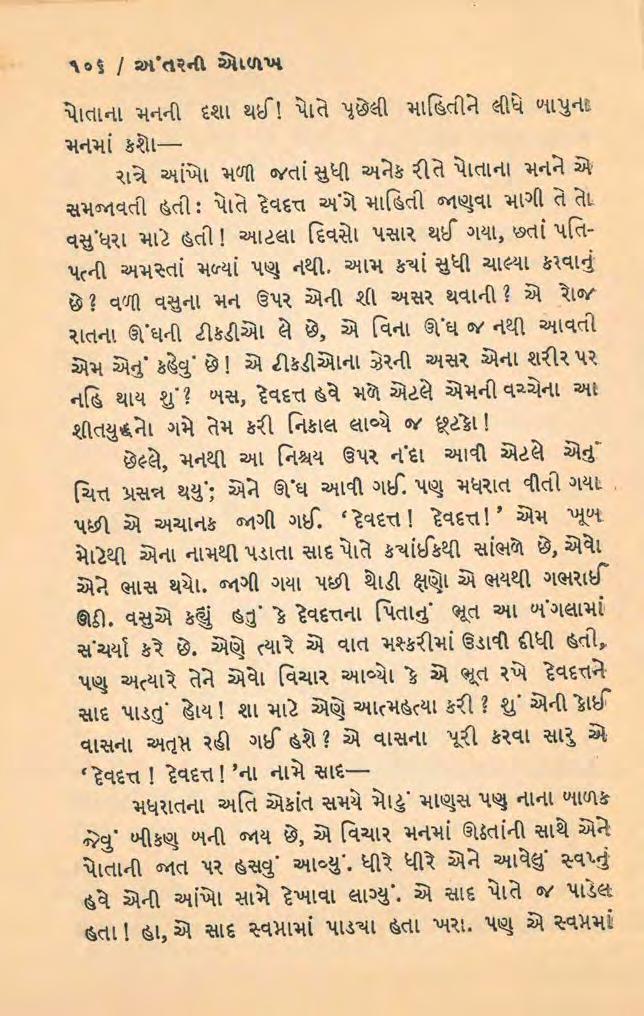 ૧૦૬ / અંતરની ઓળખ
પોતાના મનની દશા થઈ! પોતે પૂછેલી માહિતીને લીધે બાપુના
મનમાં કશો—
રાત્રે આંખો મળી જતાં સુધી અનેક રીતે પોતાના મનને એ
સમજાવતી હતી: પોતે દેવદત્ત અંગે માહિતી જાણવા માગી તે તો
વસુંધરા માટે હતી! આટલા દિવસો પસાર થઈ ગયા, છતાં પતિ-
પત્ની અમસ્તાં મળ્યાં પણ નથી. આમ કયાં સુધી ચાલ્યા કરવાનું
છે? વળી વસુના મન ઉપર એની શી અસર થવાની? એ રોજ
રાતના ઊંઘની ટીકડીઓ લે છે, એ વિના ઊંઘ જ નથી આવતી
એમ એનું કહેવું છે! એ ટીકડીઓના ઝેરની અસર એના શરીર પર
નહિ થાય શું? બસ, દેવદત્ત હવે મળે એટલે એમની વચ્ચેના આ
શીતયુદ્ધનો ગમે તેમ કરી નિકાલ લાવ્યે જ છૂટકો!
છેલ્લે, મનથી આ નિશ્ચય ઉપર નંદા આવી એટલે એનું
ચિત્ત પ્રસન્ન થયું; એને ઊંઘ આવી ગઈ. પણ મધરાત વીતી ગયા
પછી એ અચાનક જાગી ગઈ. ‘દેવદત્ત! દેવદત્ત!’ એમ ખૂબ
મોટેથી એના નામથી પડાતા સાદ પોતે કયાંઈકથી સાંભળે છે, એવો
એને ભાસ થયો. જાગી ગયા પછી થોડી ક્ષણો એ ભયથી ગભરાઈ
ઊઠી. વસુએ કહ્યું હતું કે દેવદત્તના પિતાનું ભૂત આ બંગલામાં
સંચર્યા કરે છે. એણે ત્યારે એ વાત મશ્કરીમાં ઉડાવી દીધી હતી,
પણ અત્યારે તેને એવો વિચાર આવ્યો કે એ ભૂત રખે દેવદત્તને
સાદ પાડતું હોય! શા માટે એણે આત્મહત્યા કરી? શું એની કોઈ
વાસના અતૃપ્ત રહી ગઈ હશે? એ વાસના પૂરી કરવા સારુ એ
‘દેવદત્ત! દેવદત્ત!’ના નામે સાદ—
મધરાતના અતિ એકાંત સમયે મોટું માણસ પણ નાના બાળક
જેવું બીકણ બની જાય છે, એ વિચાર મનમાં ઊઠતાંની સાથે એને
પોતાની જાત પર હસવું આવ્યું. ધીરે ધીરે એને આવેલું સ્વપ્નું
હવે એની આંખો સામે દેખાવા લાગ્યું. એ સાદ પોતે જ પાડેલ
હતા! હા, એ સાદ સ્વપ્નામાં પાડયા હતા ખરા. પણ એ સ્વપ્નમાં